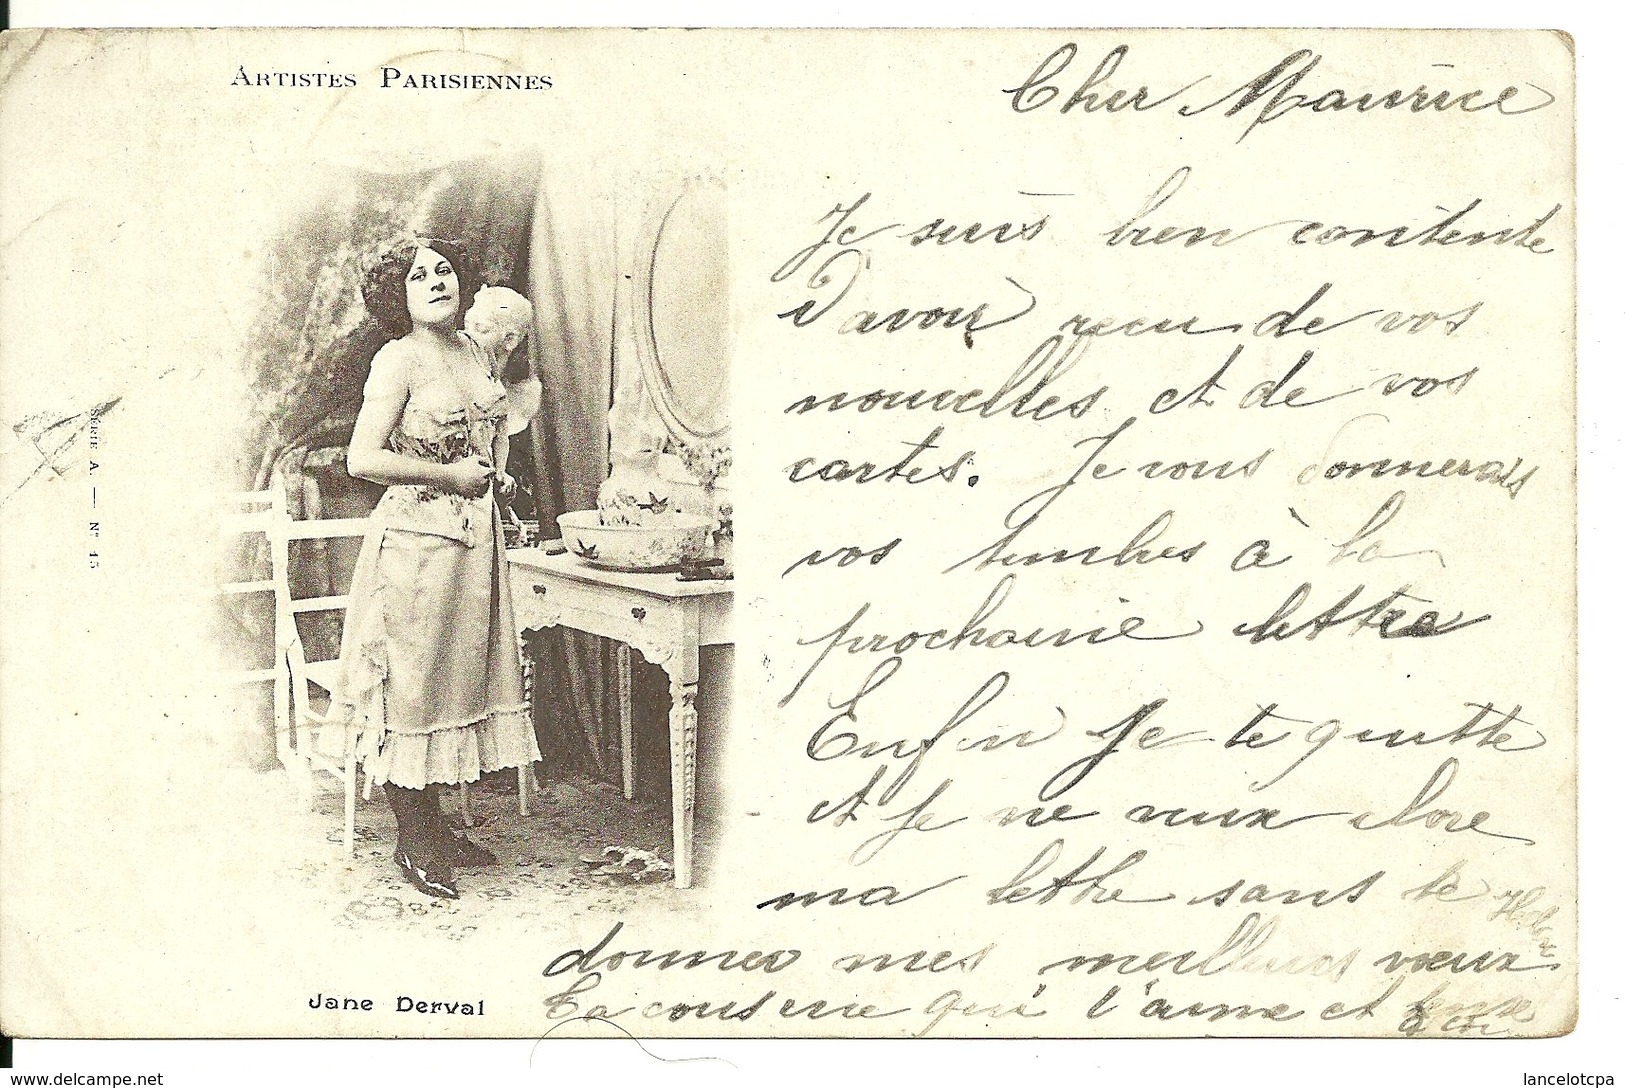 ARTISTES PARISIENNES
SÉRIE A. — N° 45
Jane Derval
Cher Maurice
Je suis bien contente
D'avoir recu de vos
nouvelles et de vos
cartes. Je vous donnerais
vos timbres à la
prochaine lettre
Enfin je te quitte
et je ne veux clore
ma lettre sans te
donner mes meilleurs vœux
Ta cousine qui t'aime et pense
à toi
lancelotcpa